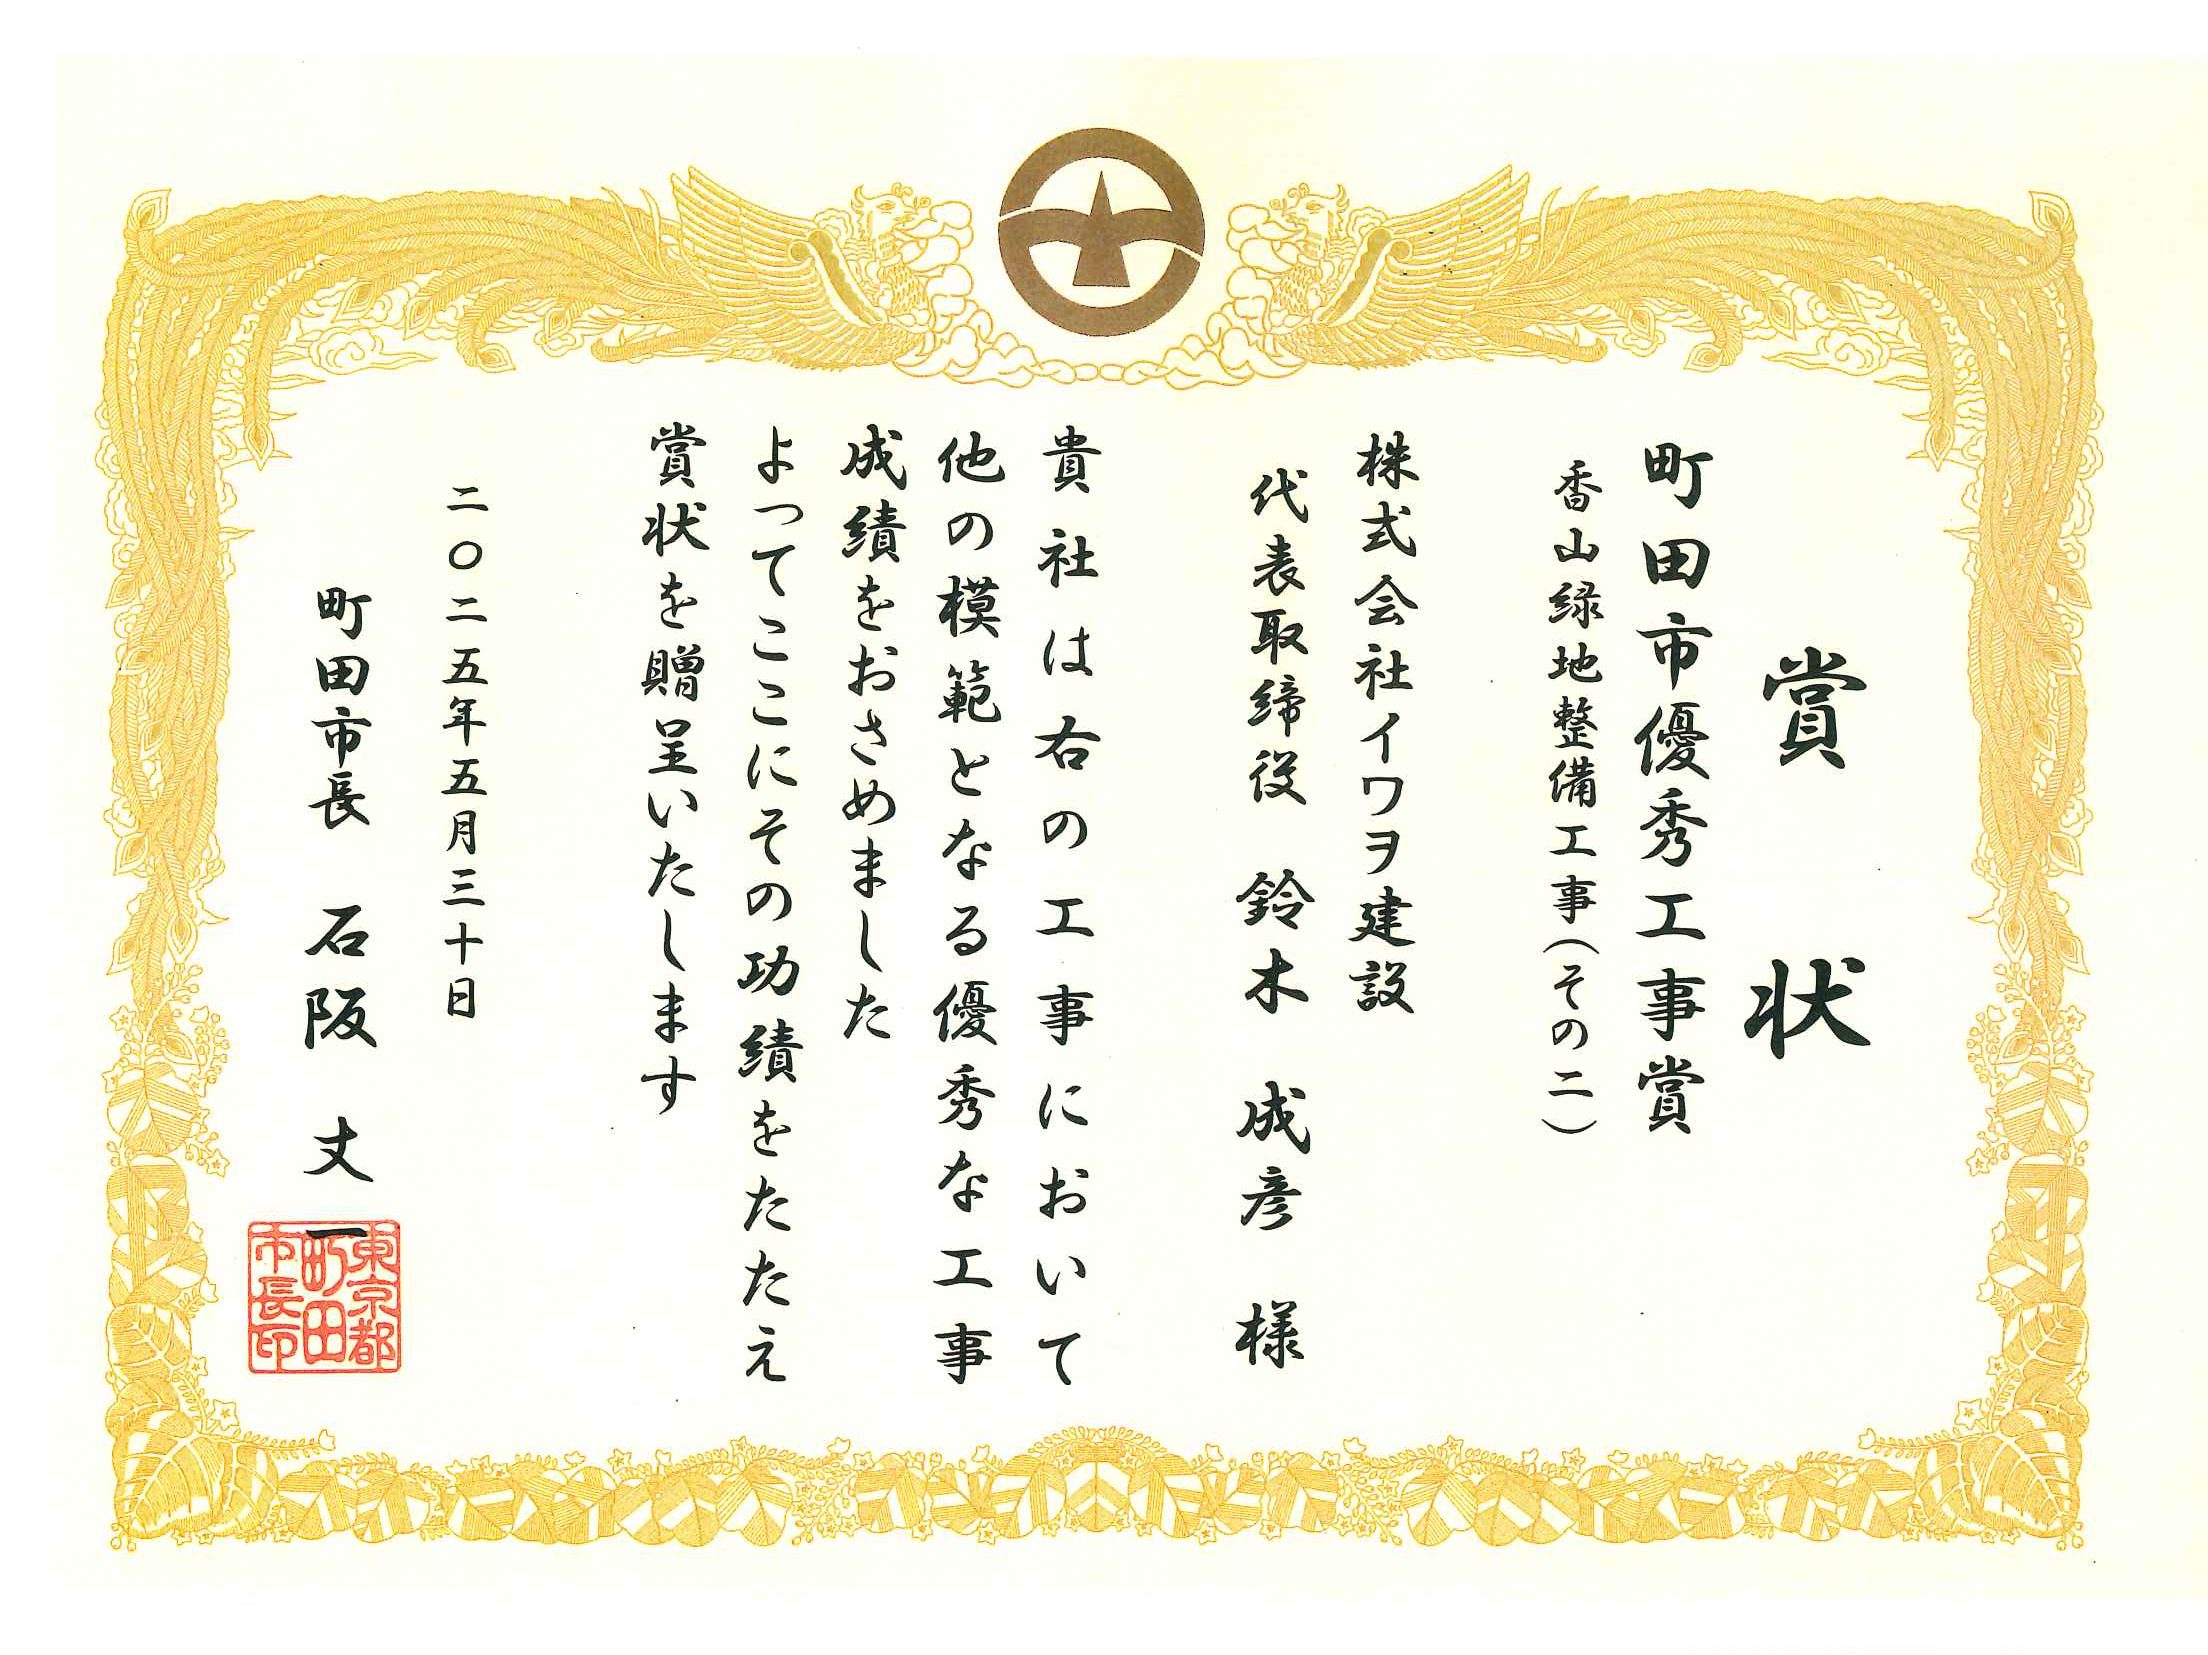 賞状
町田市優秀工事賞
香山緑地整備工事(その二)
株式会社イワヲ建設
代表取締役 鈴木 成彦 様
貴社は右の工事において
他の模範となる優秀な工事
成績をおさめました
よってここにその功績をたたえ
賞状を贈呈いたします
二〇二五年五月三十日
町田市長 石阪 丈一
東京都
町田
市長印